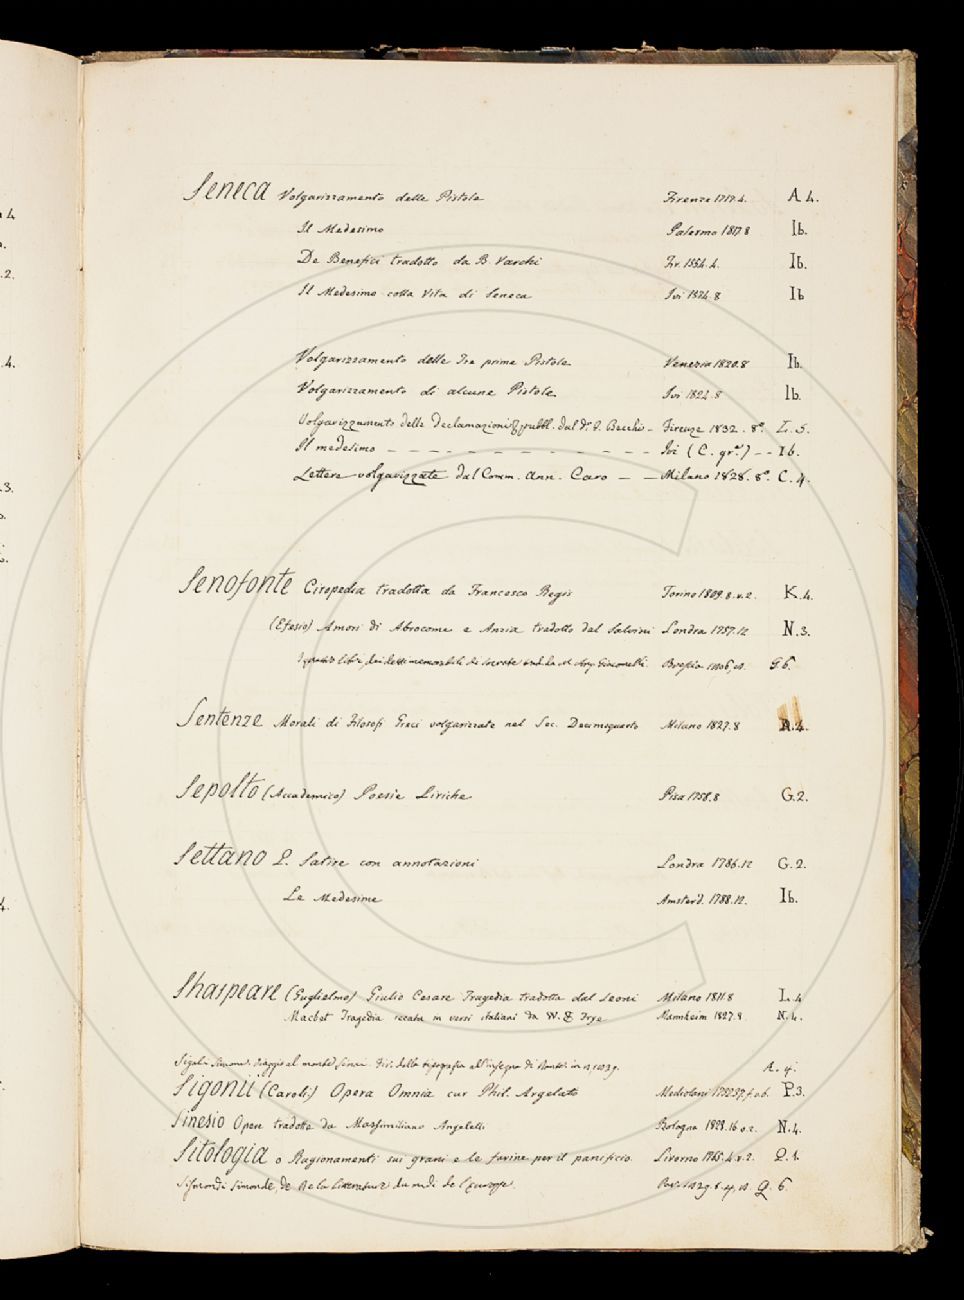 4
.2.
.4.
.3.
4.
Seneca Volgarizzamento delle Pistole Firenze 1717.4. A 4.
Il Medesimo Palermo 1817.8 Ib.
De Benefici tradotto da B Varchi Fir. 1554.4. Ib.
Il Medesimo colla Vita di Seneca Ivi 1574.8 Ib
Volgarizzamento delle Tre prime Pistole Venezia 1820.8 Ib.
Volgarizzamento di alcune Pistole Ivi 1824.8 Ib.
Volgarizzamento delle Declamazioni pubbl. dal Dr. Becchi - Firenze 1832. 8º. L. 5.
Il medesimo - - - - - - - - - - Ivi (C. gr.e) - - Ib.
Lettere volgarizzate dal Comm. Ann. Caro - - Milano 1828. 8º. C. 4.
Senofonte Ciropedia tradotta da Francesco Regis Torino 1809.8.v.2. K.4.
(Efesio) Amori di Abrocome e Anzia tradotto dal Salvini Londra 1757.12 N.3.
libri dei detti memorabili di Socrate Giacomelli. Brescia G.6.
Sentenze Morali di Filosofi Greci volgarizzate nel Sec. Decimoquarto Milano 1827.8 A.4.
Sepolto (Accademico) Poesie Liriche Pisa 1758.8 G.2.
Settano Q. Satire con annotazioni Londra 1786.12 G.2.
Le Medesime Amsterd. 1788.12. Ib.
Shaspeare (Guglielmo) Giulio Cesare Tragedia tradotta dal Leoni Milano 1811.8 L.4
Macbet Tragedia recata in versi italiani da W. E Frye Mannheim 1827.8 N.4.
Fir. dalla tipografia all'insegna di Dante. A. 4.
Sigonii (Caroli) Opera Omnia cur Phil. Argelato Mediolani P.3.
Sinesio Opere tradotte da Massimiliano Angelelli Bologna 1828.16 v.2. N.4.
Sitologia o Ragionamenti sui grani e le farine per il panificio Livorno 1765.4.v.2. Q.1.
Sismondi Simonde, De De la Litterature du midi de l'Europe. Q. 6.